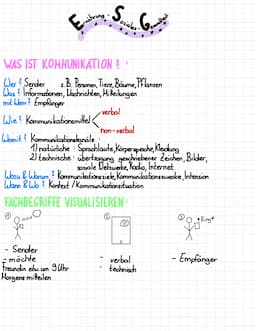 Ernährung - Soziales - Gesundheit
WAS IST KOMMUNIKATION?
Wer? Sender z.B. Personen, Tiere, Bäume, Pflanzen
Was? Informationen, Nachrichten, Mitteilungen
mit Wem? Empfänger
verbal
Wie? Kommunikationsmittel
non-verbal
Womit? Kommunikationskanäle
1) natürliche: Sprachlaute, Körpersprache, Kleidung
2) technische: übertragung geschriebener Zeichen, Bilder,
soziale Netzwerke, Radio, Internet
Wozu & Warum? Kommunikationsziele, Kommunikationszwecke, Intension
Wann & Wo? Kontext / Kommunikationssituation
FACHBEGRIFFE VISUALISIEREN:
① ② ③
- Sender
- möchte
Freundin etw. um 9 Uhr
Morgens mitteilen
- verbal
- technisch
- Empfänger